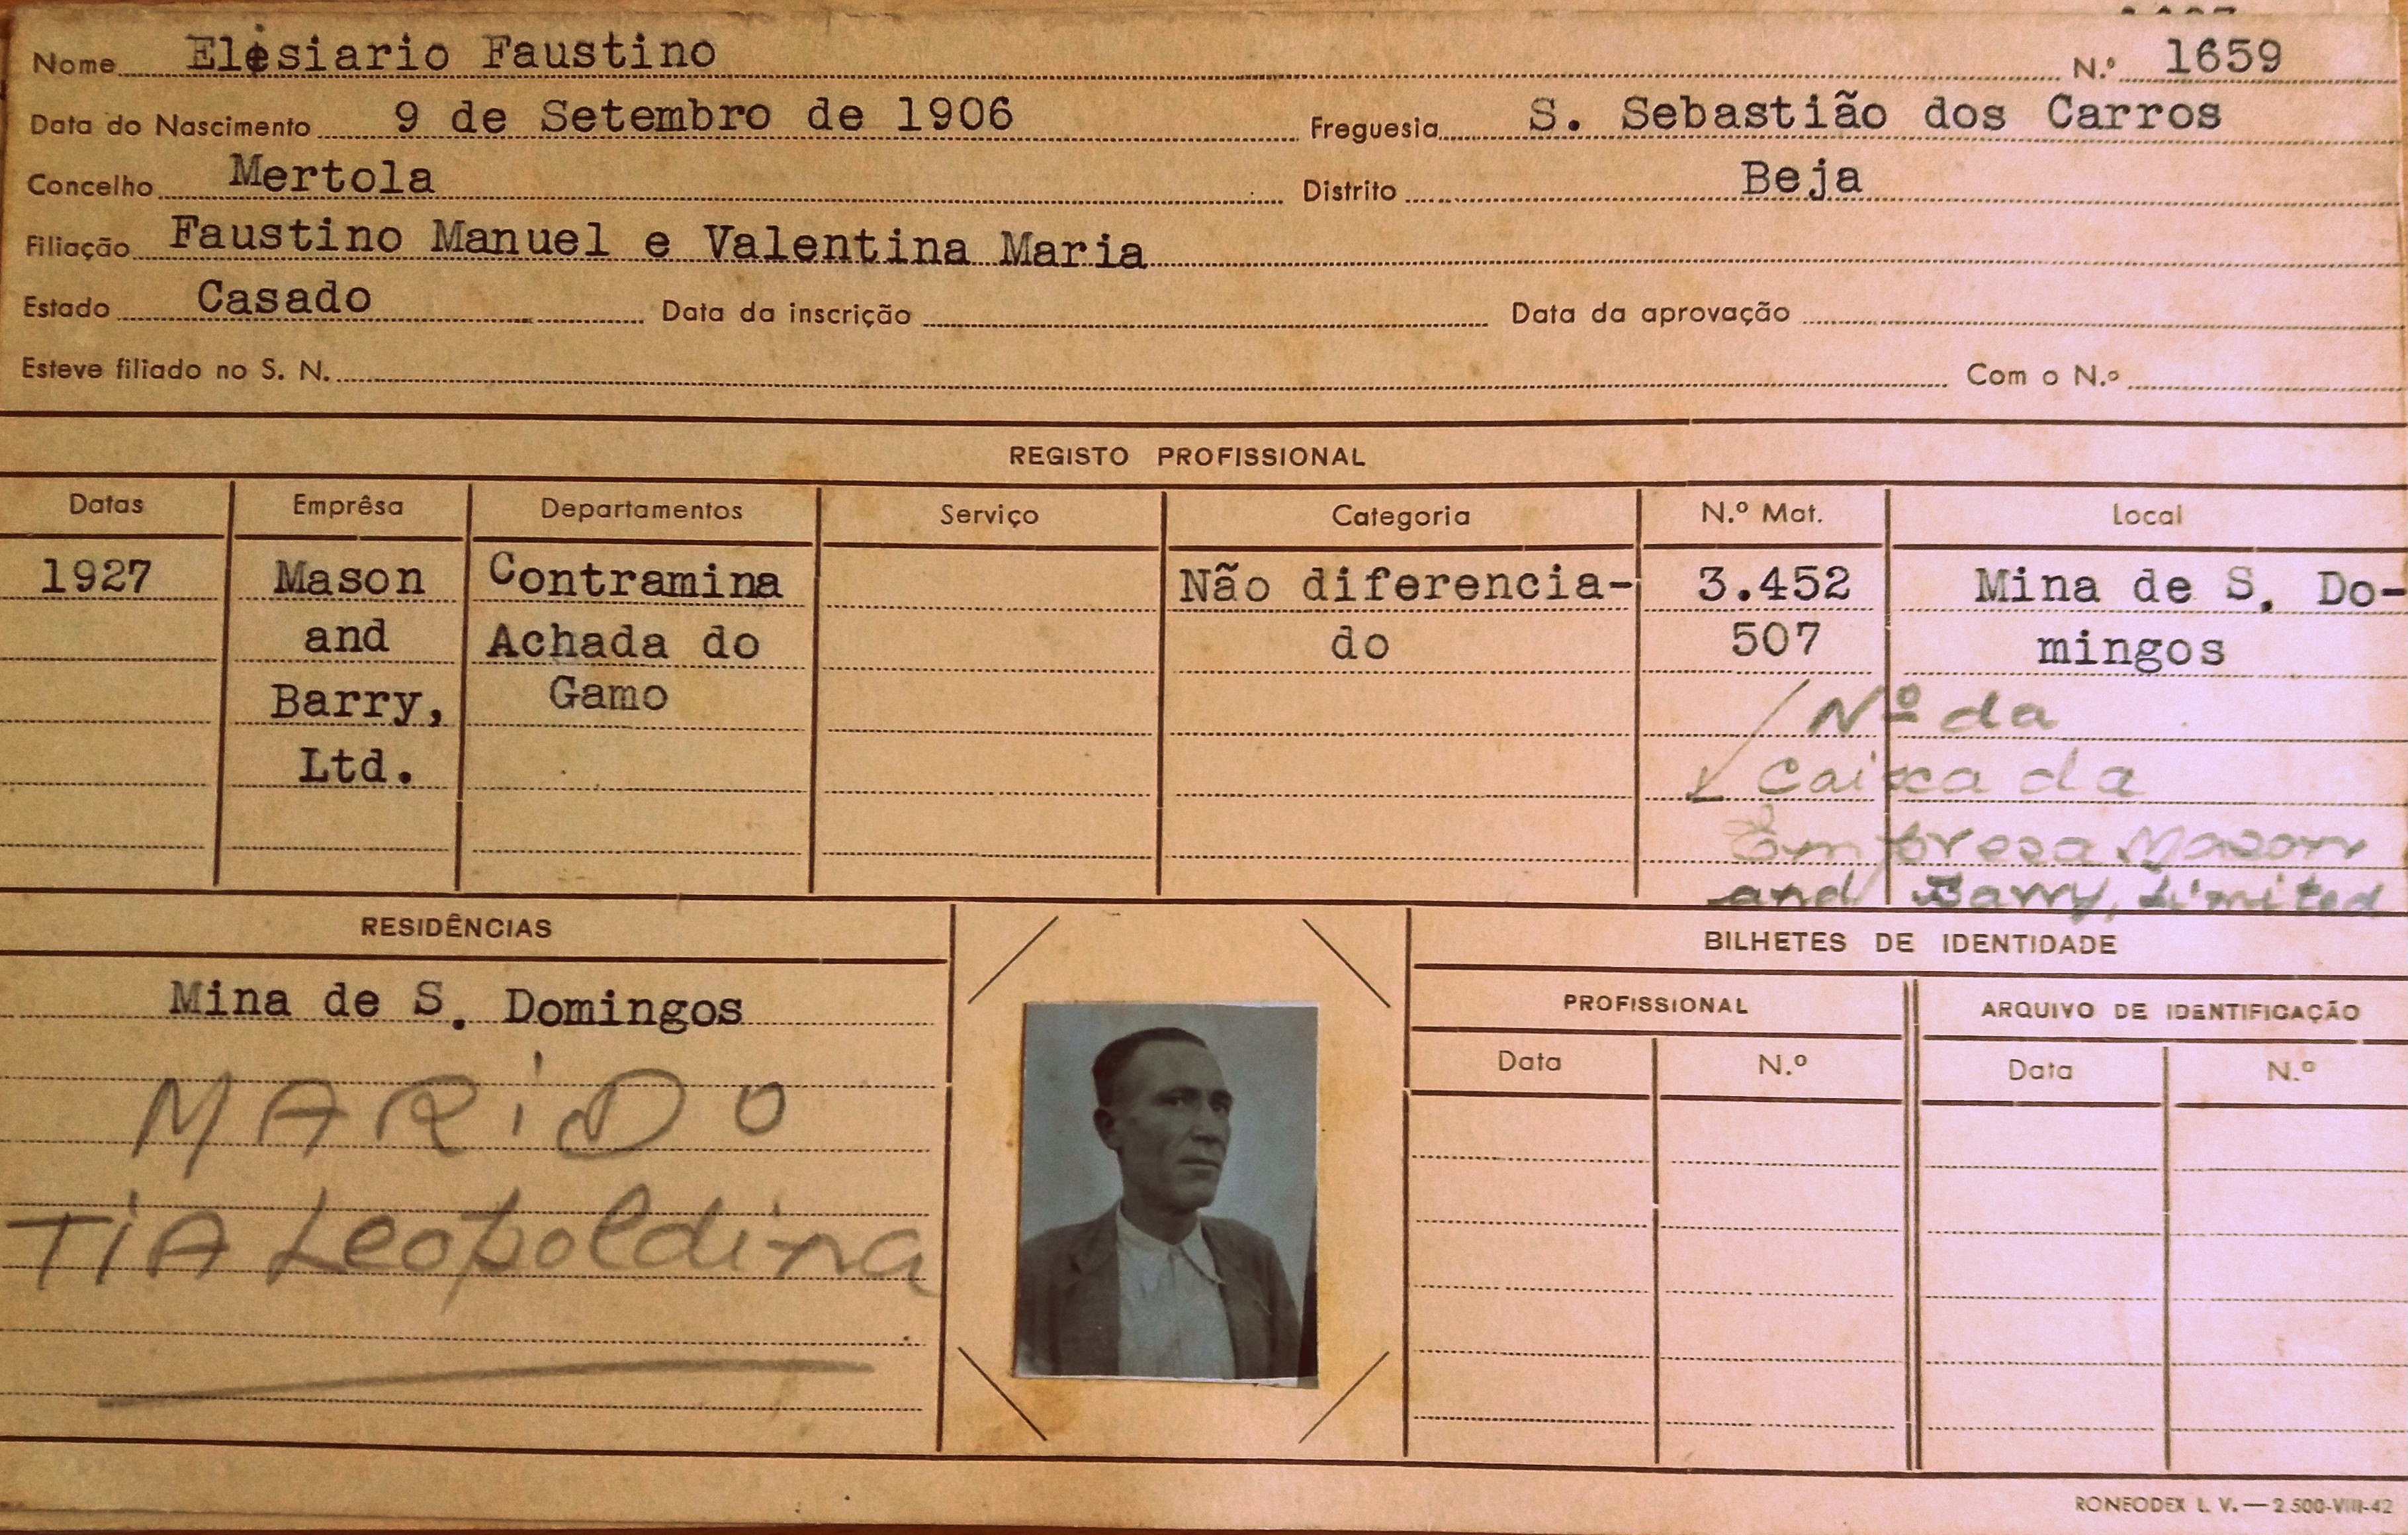 Nome Elesiario Faustino N.º 1659
Data do Nascimento 9 de Setembro de 1906 Freguesia S. Sebastião dos Carros
Concelho Mertola Distrito Beja
Filiação Faustino Manuel e Valentina Maria
Estado Casado Data da inscrição Data da aprovação
Esteve filiado no S. N. Com o N.º
REGISTO PROFISSIONAL
Datas Emprêsa Departamentos Serviço Categoria N.º Mat. Local
1927 Mason Contramina Não diferencia- 3.452 Mina de S. Do-
and Achada do do 507 mingos
Barry, Gamo Nº da
Ltd. Caixa da
Empresa Mason
and Barry, Limited
RESIDÊNCIAS
Mina de S. Domingos
MARiDO
TiA Leopoldina
BILHETES DE IDENTIDADE
PROFISSIONAL ARQUIVO DE IDENTIFICAÇÃO
Data N.º Data N.º
RONEODEX L. V. — 2.500-VIII-42